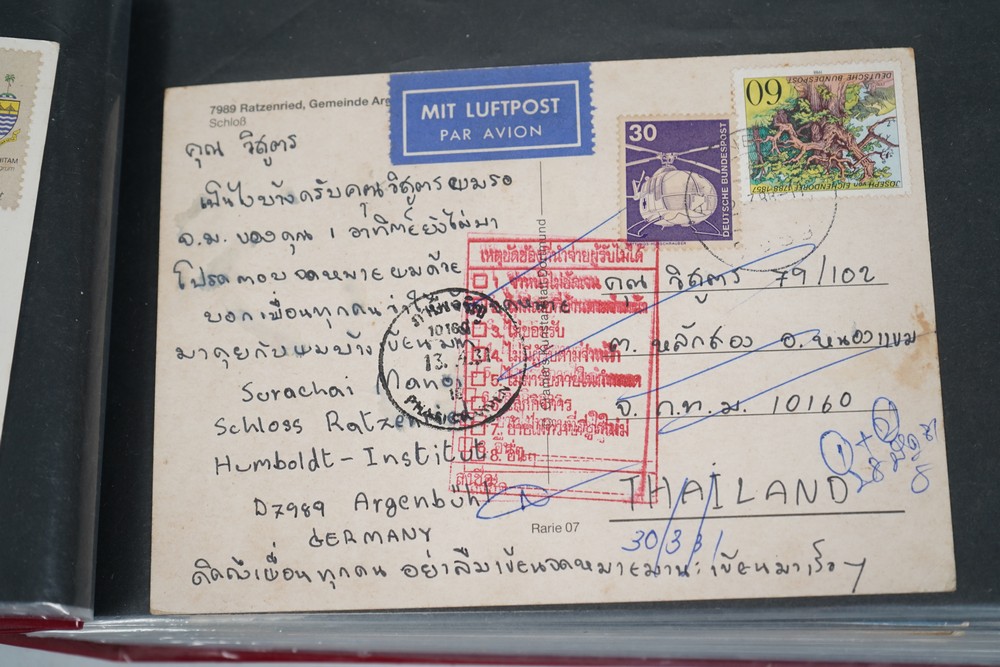 7989 Ratzenried, Gemeinde Arg
Schloß
MIT LUFTPOST
PAR AVION
30
DEUTSCHE BUNDESPOST
60
DEUTSCHE BUNDESPOST
JOSEPH VON EICHENDORFF 1788-1857
คุณ วิสูตร
เป็นไงบ้างครับคุณวิสูตรผมรอ
จ.ม. ของคุณ 1 อาทิตย์ยังไม่มา
โปรดตอบจดหมายผมด้วย
บอกเพื่อนทุกคนว่าให้
มาคุยกับผมบ้างเขียนมา
Surachai Mano
Schloss Ratzen
Humboldt-Institut
D7989 Argenbühl
GERMANY
คิดถึงเพื่อนทุกคน อย่าลืมเขียนจดหมายมานะเขียนมาเร็วๆ
10160
PHASICHAROEN
เหตุขัดข้องที่นำจ่ายผู้รับไม่ได้
1. จ่าหน้าไม่ชัดเจน
3. ไม่ยอมรับ
4. ไม่มีผู้รับตามจ่าหน้า
5. ไม่มารับภายในกำหนด
6. เลิกกิจการ
8. อื่นๆ
คุณ วิสูตร 79/102
ต. หลักสอง อ. หนองแขม
จ. ก.ท.ม. 10160
THAILAND
30/3/31
Rarie 07